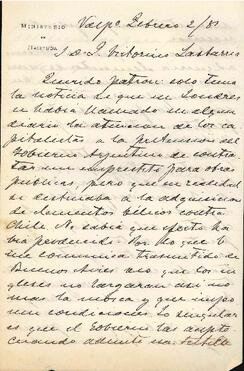 MINISTERIO
DE
HACIENDA
Valpo Febrero 2/81
S. D. J. Victorino Lastarria
Querido patron: solo tenia
la noticia de que en Londres
se habia llamado en algun
diario la atencion de los ca
pitalistas a la pretension del
Gobierno Arjentino de contra
tar un emprestito para obras
publicas, pero que en realidad
se destinaba a la adquisicion
de elementos bélicos contra
Chile. No sabia que efecto ha
bia producido. Por lo que U
me comunica trasmitido de
Buenos Aires veo que los in
gleses no largaron asi no
mas la mosca y que impo
nen condiciones. Lo singular
es que el Gobierno las acepte
cuando admite una